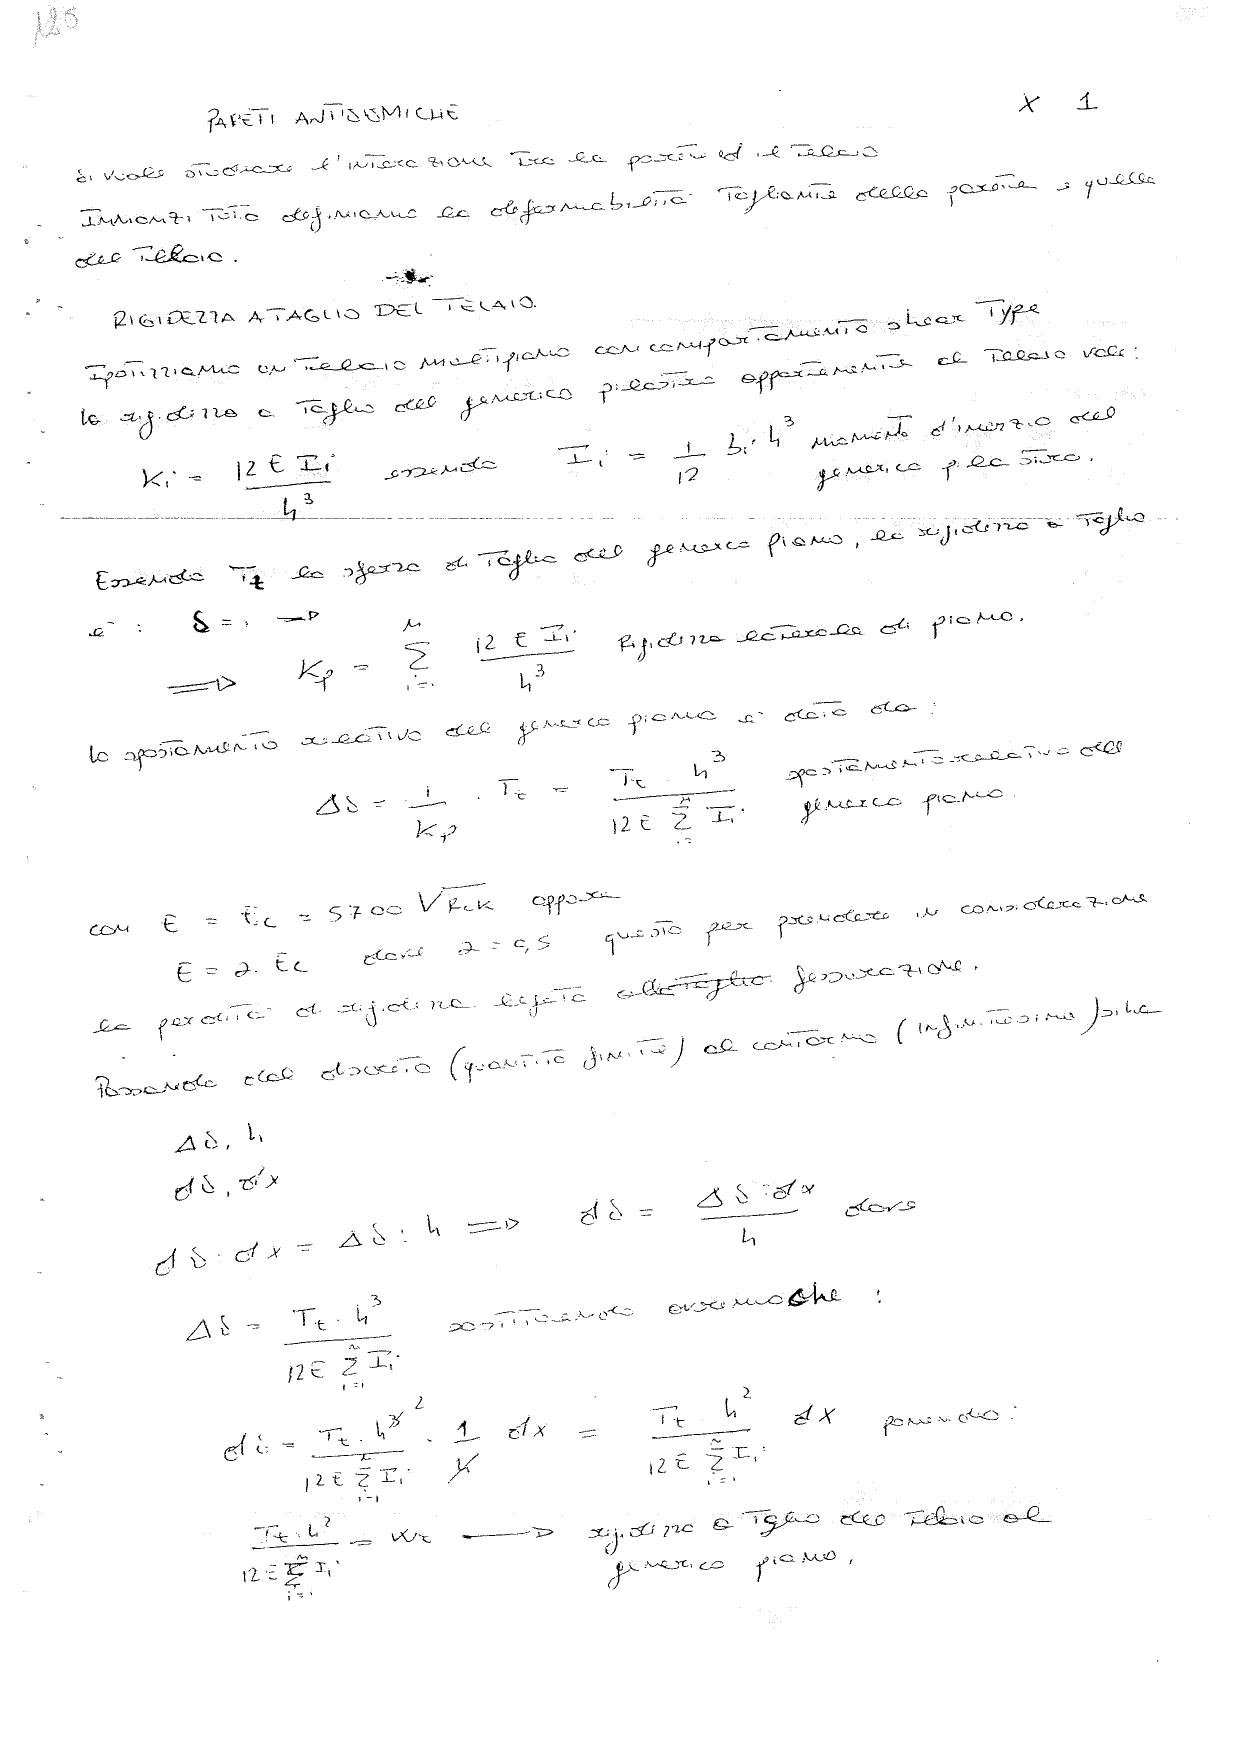 125
PARETI ANTISISMICHE
X 1
Si vuole studiare l'interazione tra la parete ed il telaio
Innanzi tutto definiamo la deformabilità tagliante della parete e quella
del telaio.
RIGIDEZZA A TAGLIO DEL TELAIO
Ipotizziamo un telaio multipiano con comportamento shear Type
la rigidezza a taglio del generico pilastro appartenente al telaio vale:
Ki = 12 E Ii / h³ essendo Ii = 1/12 bi·h³ momento d'inerzia del
generico pilastro.
Essendo Tt lo sforzo di taglio del generico piano, la rigidezza a taglio
e' : δ = 1 →
⟹ Kp = Σ(i=1, n) 12 E Ii / h³ Rigidezza laterale di piano.
lo spostamento relativo del generico piano e' dato da:
Δδ = 1/Kp · Tt = Tt · h³ / 12E Σ(i=, n) Ii spostamento relativo del
generico piano.
con E = Ec = 5700 √Rck oppure
E = 2. Ec dove 2 = 0,5 questo per prendere in considerazione
la perdita di rigidezza legata alla taglio fessurazione.
Passando dal discreto (quantità finite) al contorno (infinitesimo) si ha
Δδ, h
dδ, dx
dδ : dx = Δδ : h ⟹ dδ = Δδ · dx / h dove
Δδ = Tt · h³ / 12E Σ(i=1, n) Ii sostituendo avremo che :
di = Tt · h³ ² / 12E Σ(i=1, n) Ii · 1/h dx = Tt · h² / 12E Σ(i=1, n) Ii dx ponendo:
Tt · h² / 12E Σ(i=1, n) Ii = Kt ⟶ rigidezza a Tglio del Telaio al
generico piano.